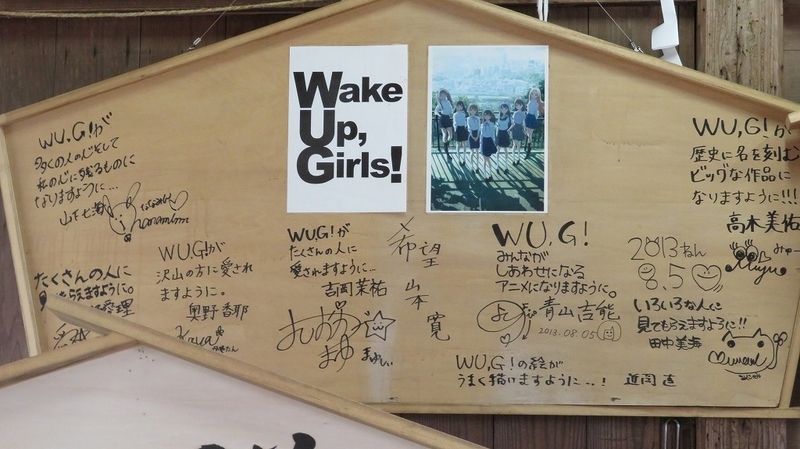 Wake
Up,
Girls!
WU,G!が
多くの人の心をそして
私の心に残るものに
なりますように…
山下七海
ななみん♡
nanamin
たくさんの人に
ますように。
WU,G!が
沢山の方に愛され
ますように。
奥野香耶
Kaya
WU,G!が
たくさんの人に
愛されますように…
吉岡茉祐
まゆ
希望
山本
寛
WU,G!
みんなが
しあわせになる
アニメになりますように。
青山吉能
2013.08.05
WU,G!の絵が
うまく描けますように…!
近岡直
WU,G!が
歴史に名を刻む
ビッグな作品に
なりますように!!!
高木美佑
みゅー
Myu
2013ねん
8.5
いろいろな人に
見てもらえますように!!
田中美海
Minami